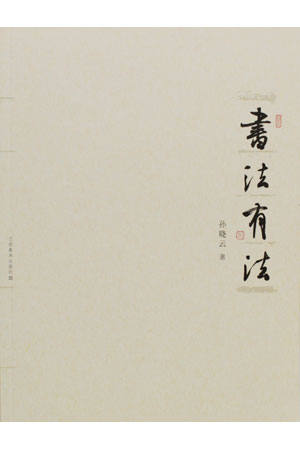 書法有法
孙晓云 著
江苏美术出版社